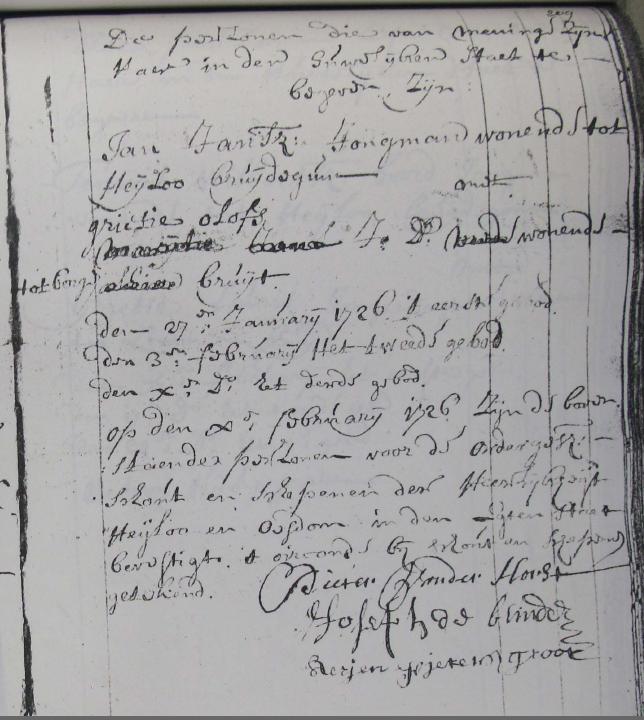 De persoonen die van meninge Zijn
haer in den huwelijken staet te
begeven Zijn
Jan Jansz: Jongman wonende tot
Heyloo bruijdegum met
grietie olofs
J. D. wonende
tot berge bruijt.
den 27en January 1726 't eerste gebod
den 3en february Het tweede gebod
den xen Do. het derde gebod.
op den xen february 1726 Zijn de boven
staende persoonen voor de ondergesz:
schout en schepenen der Heerlijkheijt
Heyloo en Oesdom in den Egten staet
bevestigt. t oirconde bij schout en schepens
getekend. Pieter vander Horst
Josef de blinde
Aerjen pieters groot